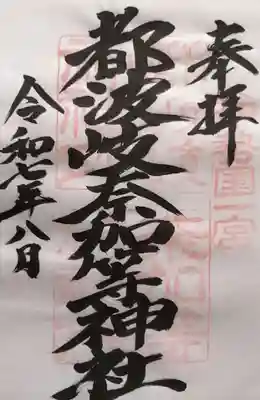 奉拝
伊勢國一宮
都波岐奈加等神社
令和七年八日